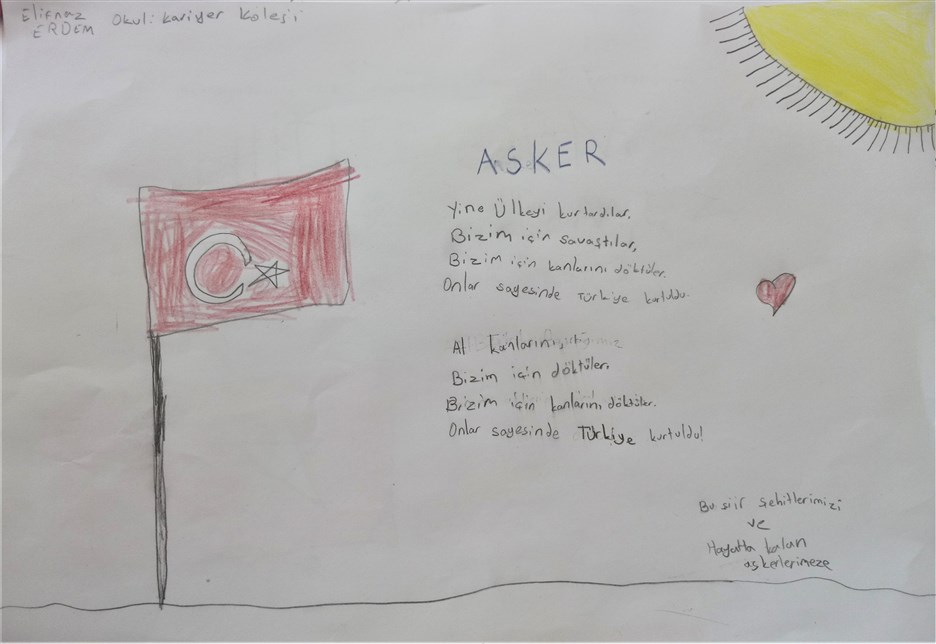 Elifnaz Okul: Kariyer Koleji
ERDEM
ASKER
Yine Ülkeyi kurtardılar,
Bizim için savaştılar,
Bizim için kanlarını döktüler.
Onlar sayesinde Türkiye kurtuldu.
Al kanlarını
Bizim için döktüler,
Bizim için kanlarını döktüler.
Onlar sayesinde Türkiye kurtuldu!
Bu şiir şehitlerimizi
ve
Hayatta kalan
askerlerimeze